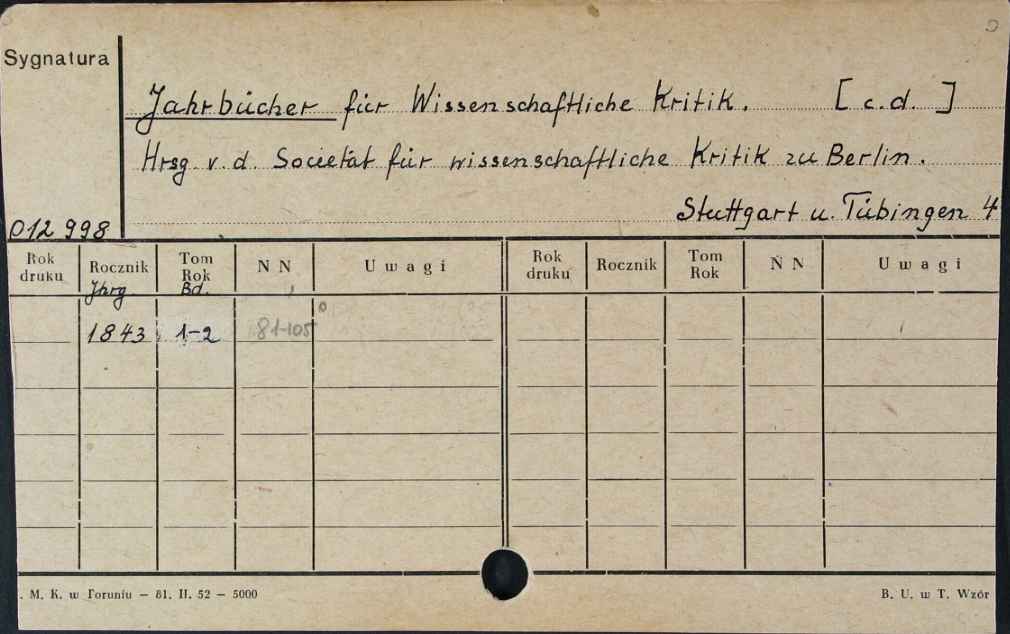 Sygnatura
Jahrbücher für Wissenschaftliche Kritik. [c.d.]
Hrsg v. d. Societät für wissenschaftliche Kritik zu Berlin.
Stuttgart u. Tübingen 4
012 998
Rok druku Rocznik Tom Rok N N Uwagi Rok druku Rocznik Tom Rok N N Uwagi
Jhrg. Bd.
1843 1-2 81-105
. M. K. w Toruniu — 81. II. 52 — 5000 B. U. w T. Wzór